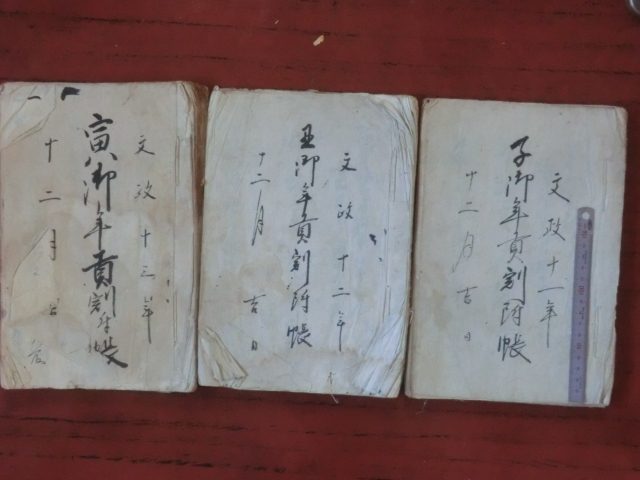 文政十一年
子御年貢割附帳
十二月吉日
文政十二年
丑御年貢割附帳
十二月吉日
文政十三年
寅御年貢割附帳
十二月吉